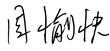 周愉快